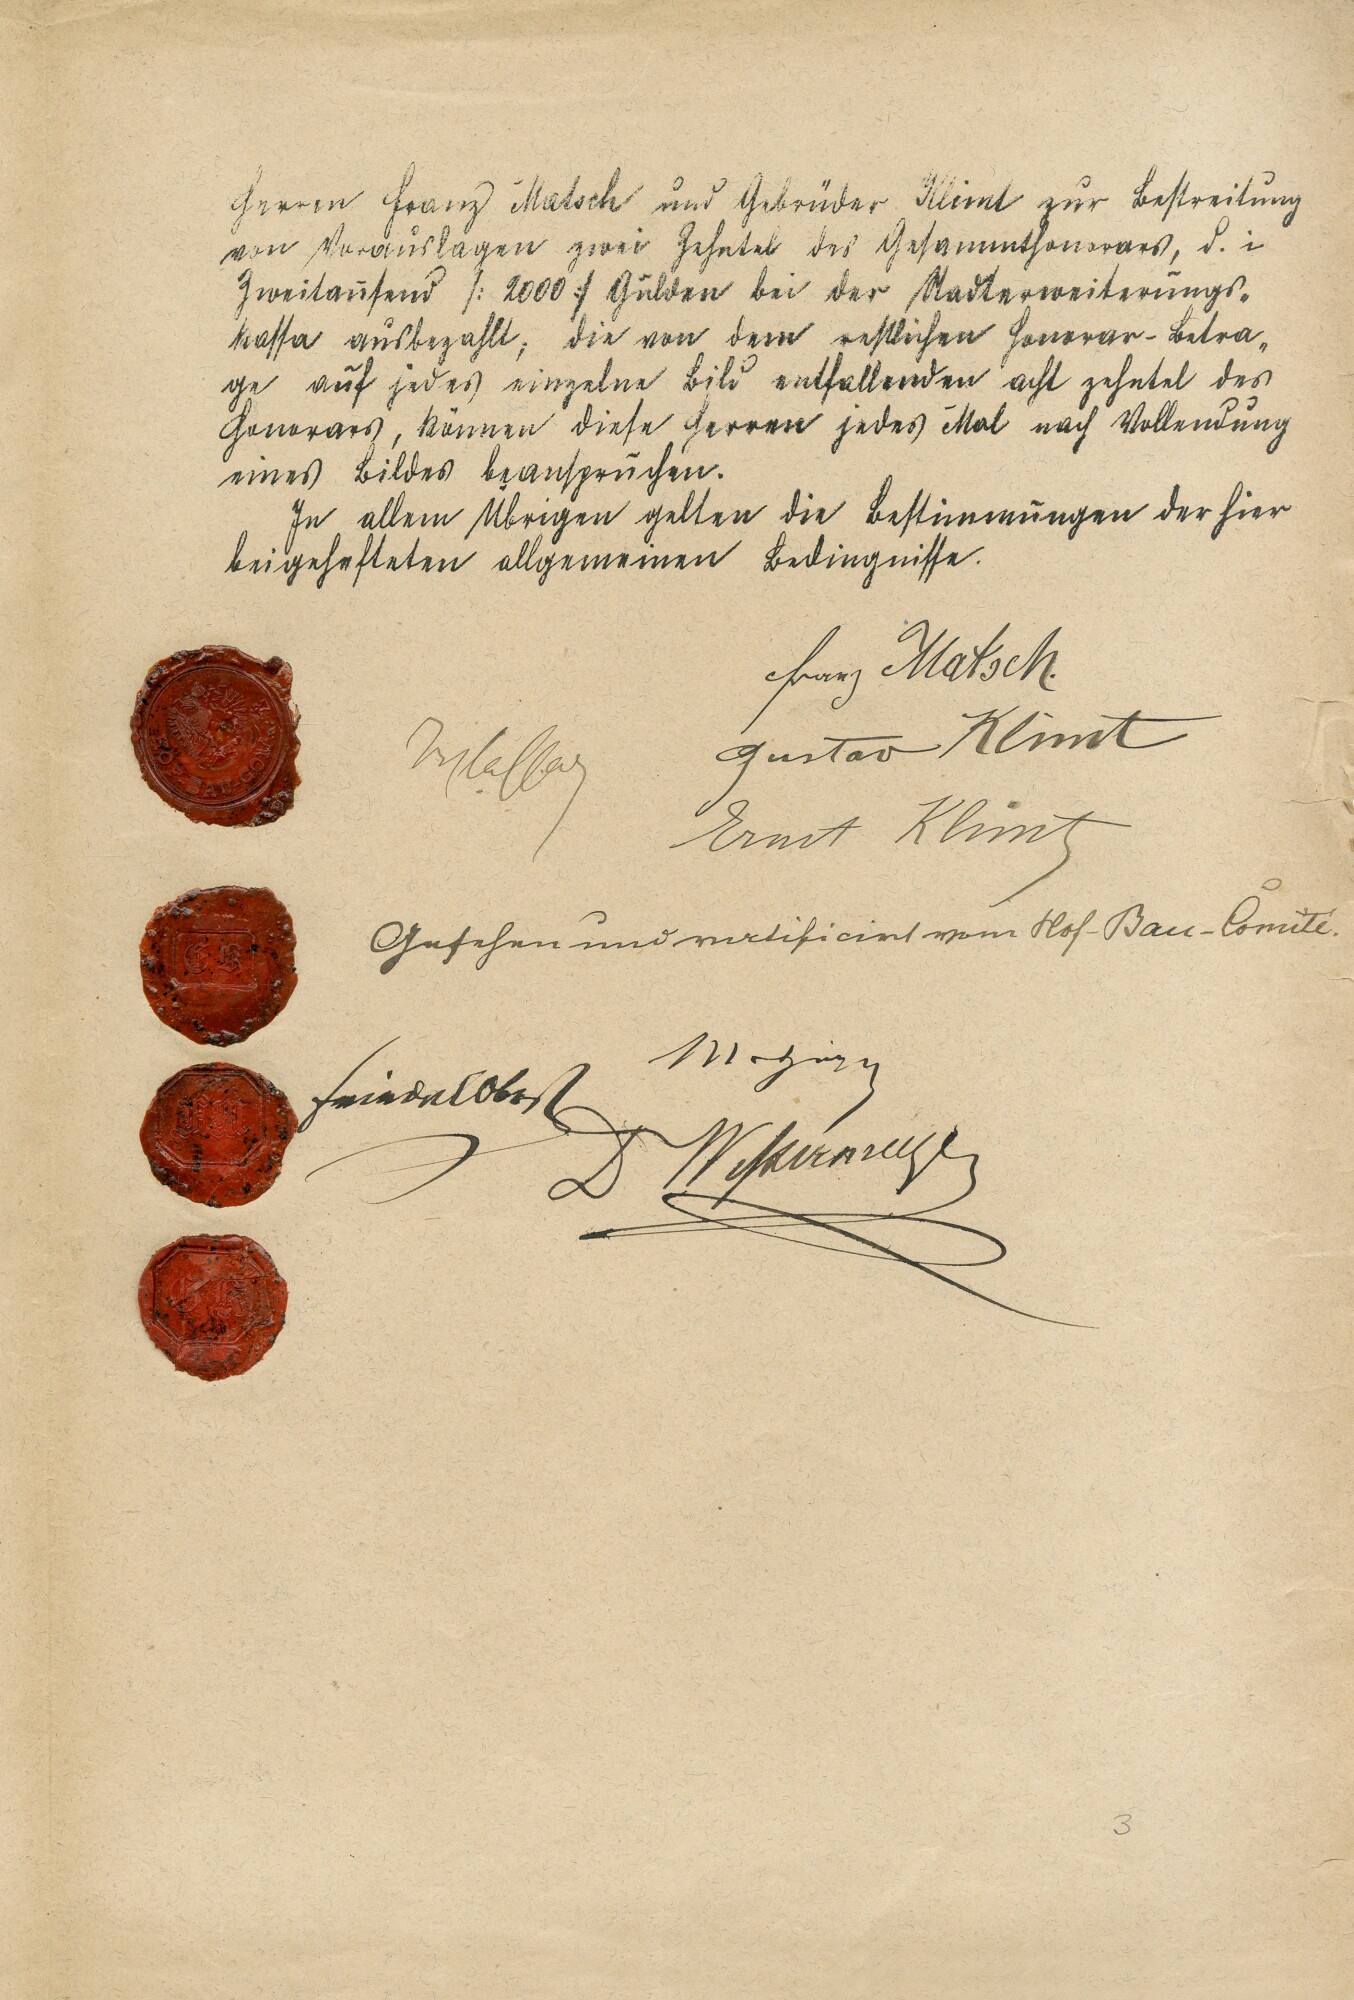 Herren Franz Matsch und Gebrüder Klimt zur Bestreitung
von Vorauslagen zwei Zehntel des Gesammthonorars, d. i
Zweitausend /: 2000 :/ Gulden bei der Stadterweiterungs-
kassa ausbezahlt; die von dem restlichen Honorar-Betra-
ge auf jedes einzelne Bild entfallenden acht zehntel des
Honorars, können diese Herren jedes Mal nach Vollendung
eines Bildes beanspruchen.
In allem Übrigen gelten die Bestimmungen der hier
beigehefteten allgemeinen Bedingnisse.
Franz Matsch.
Gustav Klimt
Ernst Klimt
Gesehen und ratificirt vom Hof-Bau-Comité.
Friedel Obest
Dr
3